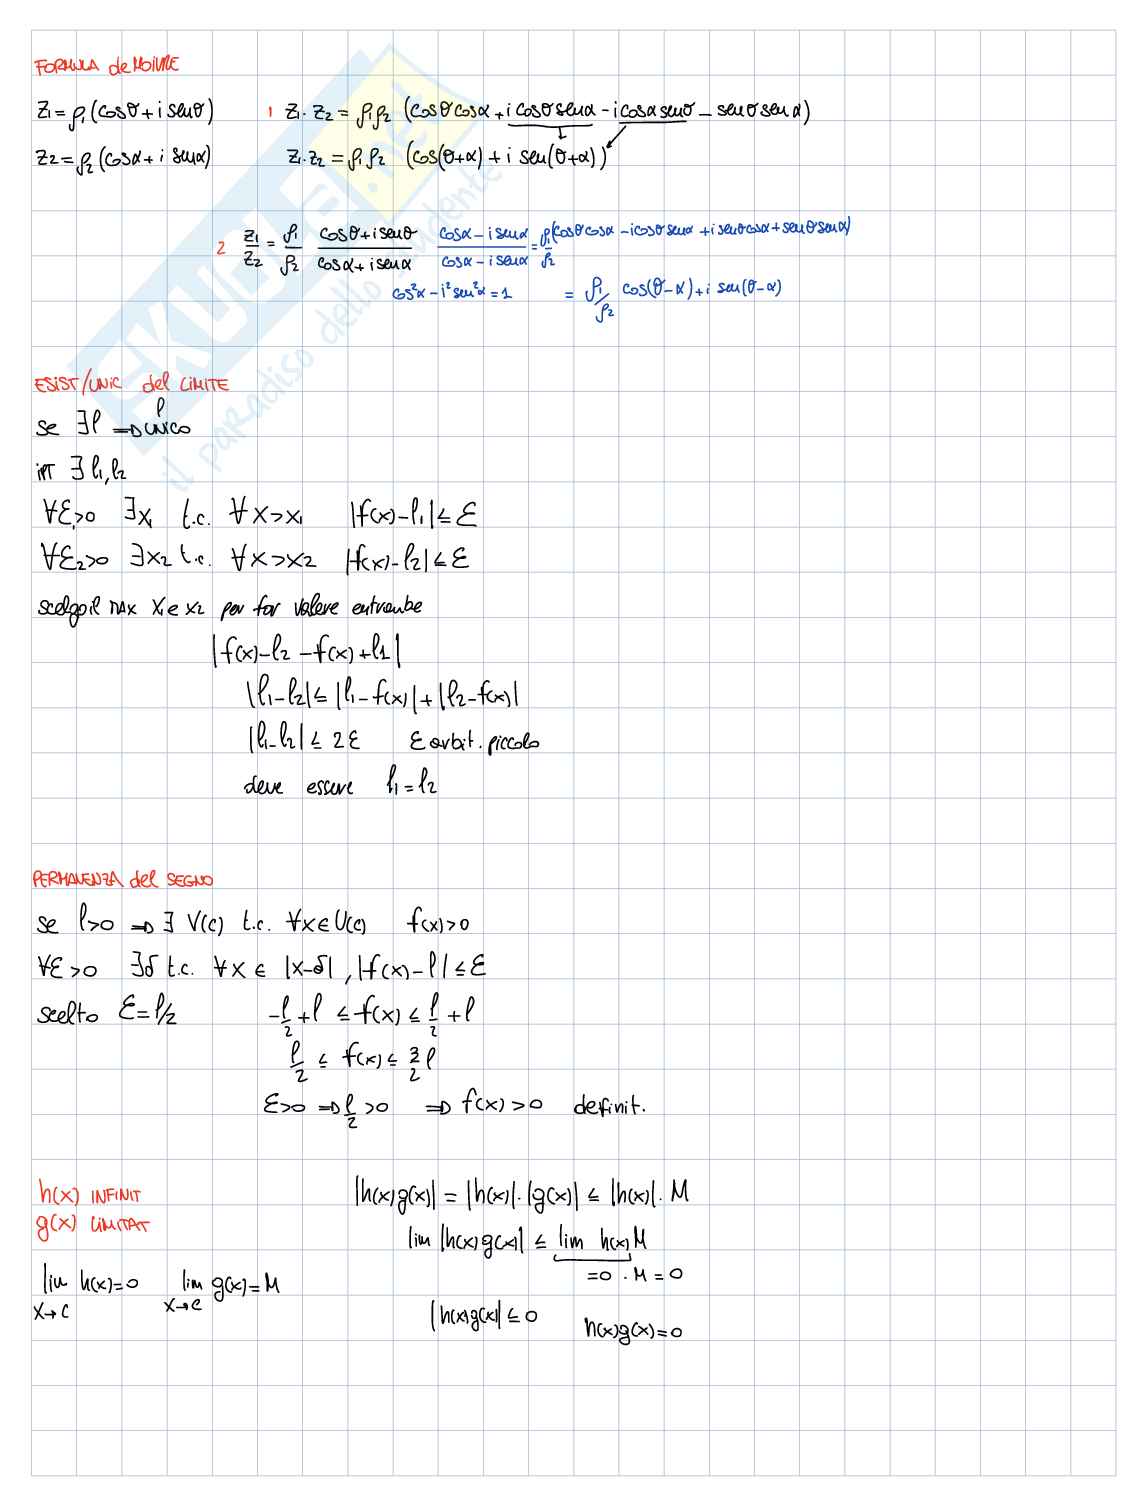 FORMULA de MOIVRE
z₁ = ρ₁(cosθ + i senθ)
1 z₁ · z₂ = ρ₁ρ₂ (cosθcosα + i cosθsenα - i cosαsenθ - senθsenα)
z₂ = ρ₂(cosα + i senα)
z₁·z₂ = ρ₁ρ₂ (cos(θ+α) + i sen(θ+α))
2 z₁/z₂ = ρ₁/ρ₂ (cosθ + i senθ)/(cosα + i senα) (cosα - i senα)/(cosα - i senα) = ρ₁/ρ₂ (cosθcosα - i cosθsenα + i senθcosα + senθsenα)
cos²α - i²sen²α = 1
= ρ₁/ρ₂ cos(θ-α) + i sen(θ-α)
ESIST/UNIC del LIMITE
se ∃l ⇒ l UNICO
∃ l₁, l₂
∀ε₁>0 ∃x₁ t.c. ∀x>x₁ |f(x)-l₁| ≤ ε
∀ε₂>0 ∃x₂ t.c. ∀x>x₂ |f(x)-l₂| ≤ ε
scelgo il MAX x₁ e x₂ per far valere entrambe
|f(x)-l₂-f(x)+l1|
|l₁-l₂| ≤ |l₁-f(x)| + |l₂-f(x)|
|l₁-l₂| ≤ 2ε ε arbit. piccolo
deve essere l₁=l₂
PERMANENZA del SEGNO
se l>0 ⇒ ∃ V(c) t.c. ∀x∈U(c) f(x)>0
∀ε>0 ∃δ t.c. ∀x∈ |x-δ|, |f(x)-l| ≤ ε
scelto ε=l/2
-l/2+l ≤ f(x) ≤ l/2+l
l/2 ≤ f(x) ≤ 3/2 l
ε>0 ⇒ l/2>0 ⇒ f(x)>0 definit.
h(x) INFINIT
g(x) LIMITAT
lim x→c h(x)=0 lim x→c g(x)=M
|h(x)g(x)| = |h(x)|·|g(x)| ≤ |h(x)|·M
lim |h(x)g(x)| ≤ lim h(x) M
=0 · M = 0
|h(x)g(x)| ≤ 0
h(x)g(x)=0
SKUOLA.net
il paradiso dello studente